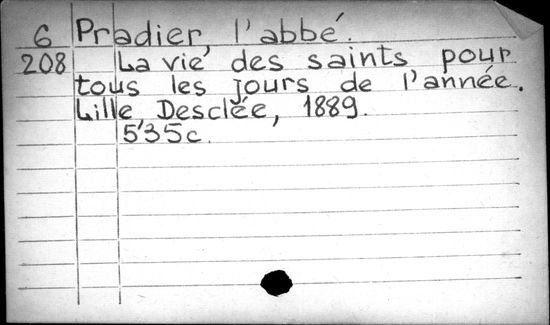 6 Pradier, l'abbé.
208 La vie des saints pour
tous les jours de l'année.
Lille, Desclée, 1889.
535c.